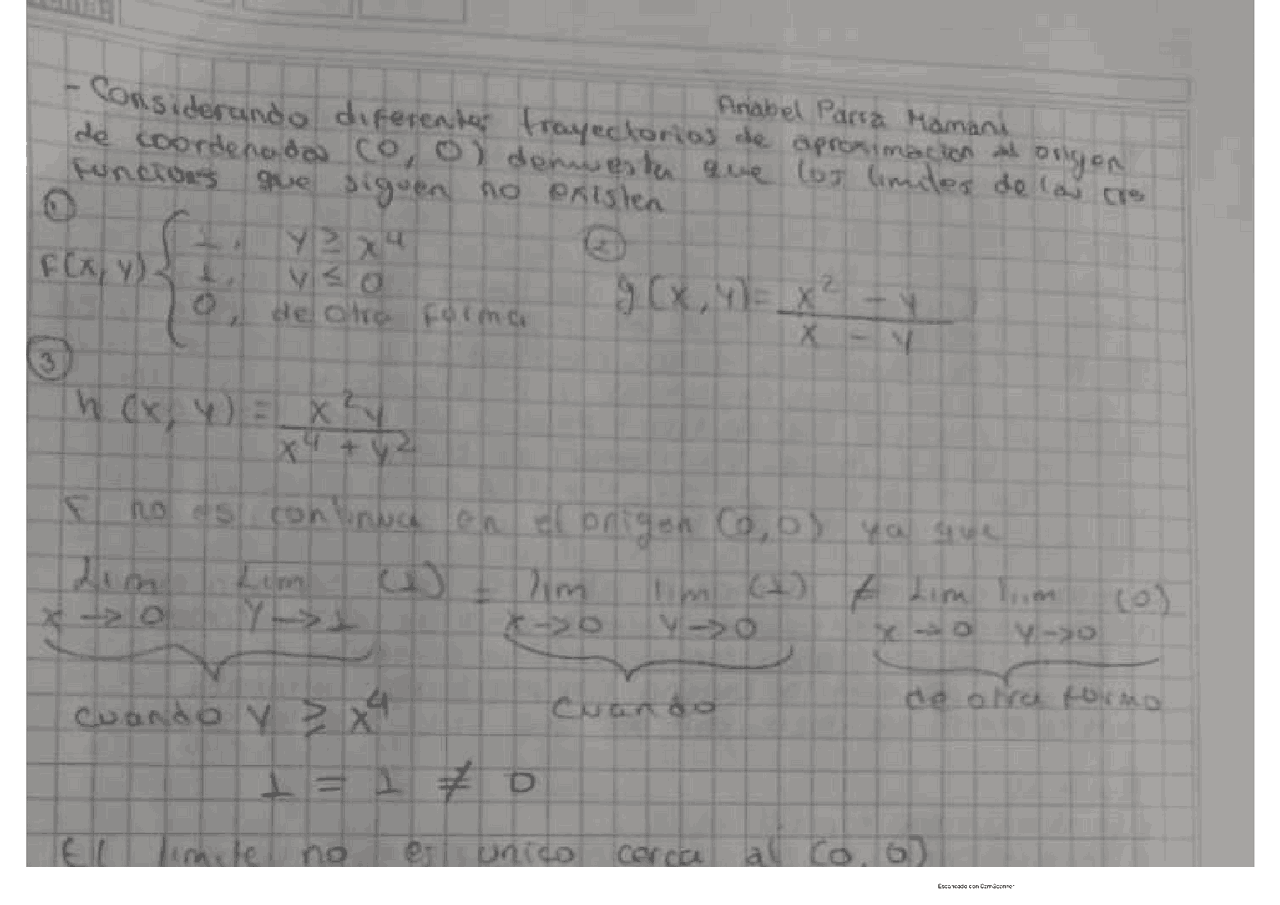 Anabel Parra Mamani
- Considerando diferentes trayectorias de aproximacion al origen
de coordenadas (0, 0) demuestra que los limites de las
funciones que siguen no existen
①
f(x, y) { 1, y ≥ x⁴
1, y ≤ 0
0, de otra forma
②
g(x, y) = x² - y / x - y
③
h(x, y) = x²y / x⁴ + y²
F no es continua en el origen (0, 0) ya que
Lim x→0 Lim y→1 (1) = lim x→0 lim y→0 (1) ≠ Lim x→0 lim y→0 (0)
cuando y ≥ x⁴ cuando de otra forma
1 = 1 ≠ 0
El limite no es unico cerca al (0, 0)
Escaneado con CamScanner